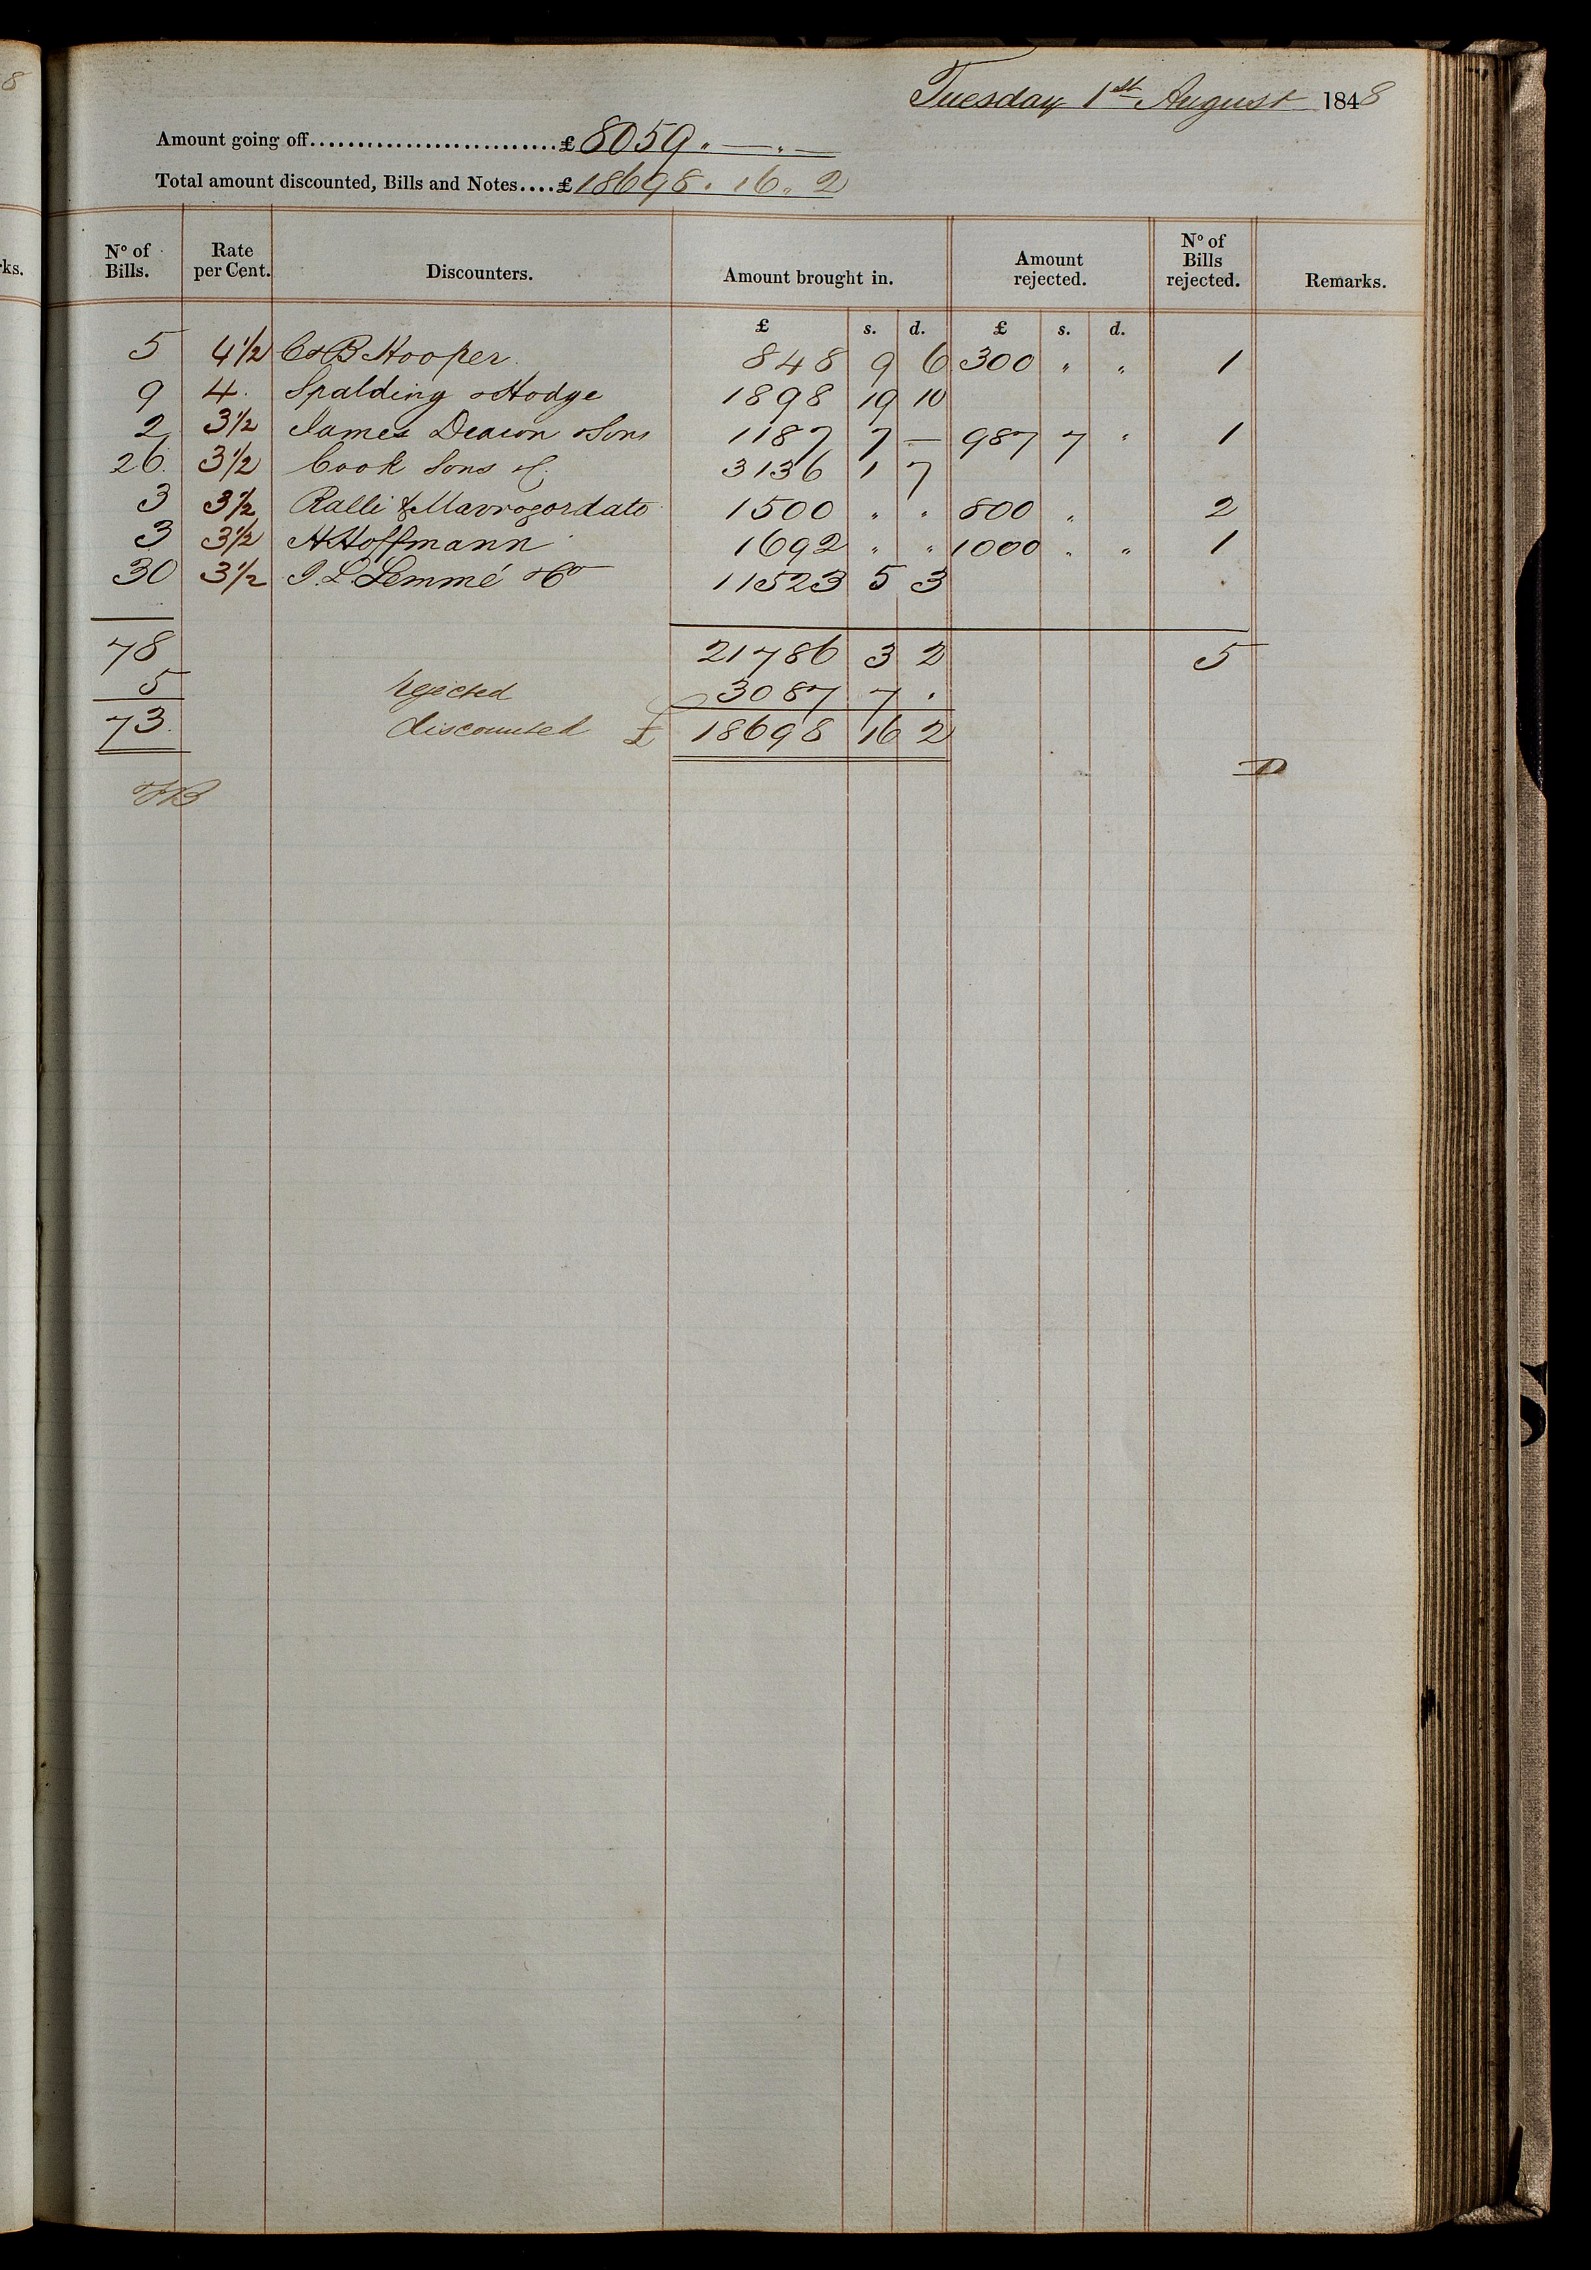 8
Tuesday 1st August 1848
Amount going off...........................£ 8059 " — " —
Total amount discounted, Bills and Notes....£ 18698 " 16 " 2
rks.
No of Bills. Rate per Cent. Discounters. Amount brought in. Amount rejected. No of Bills rejected. Remarks.
£ s. d. £ s. d.
5 4 1/2 C & B Hooper. 848 9 6 300 " " 1
9 4. Spalding & Hodge 1898 19 10
2 3 1/2 James Deacon & Sons 1187 7 — 987 7 " 1
26. 3 1/2 Cook Sons &c. 3136 1 7
3 3 1/2 Ralli & Mavrogordato 1500 " " 800 " 2
3 3 1/2 H Hoffmann 1692 " " 1000 " " 1
30 3 1/2 J. L. Lemmé & Co 11523 5 3
78 21786 3 2 5
5 rejected 3087 7 .
73. discounted £ 18698 16 2